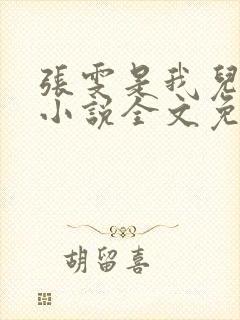 張雯是我兒
小說全文免
胡留喜